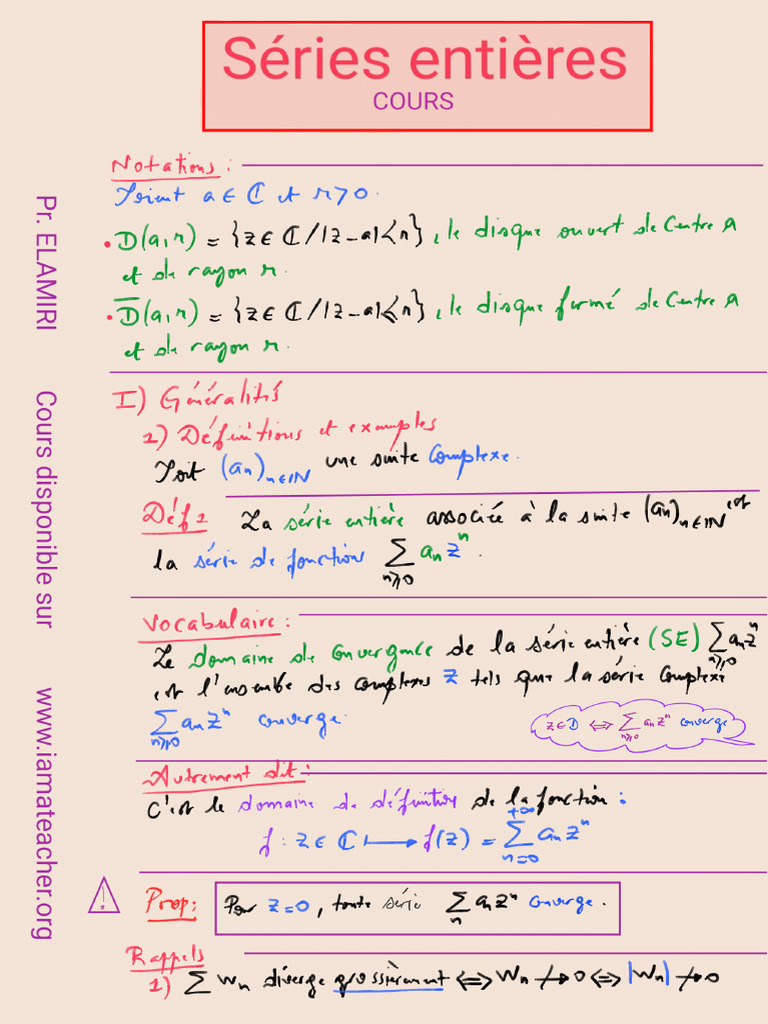 Séries entières
COURS
Notations :
Soient a ∈ ℂ et r > 0.
• D(a,r) = {z ∈ ℂ / |z-a| < r}, le disque ouvert de Centre a
et de rayon r.
• D̅(a,r) = {z ∈ ℂ / |z-a| ≤ r}, le disque fermé de Centre a
et de rayon r.
I) Généralités
1) Définitions et exemples
Soit (an)n∈ℕ une suite Complexe.
Déf 1 La série entière associée à la suite (an)n∈ℕ est
la série de fonction ∑n≥0 an zⁿ.
Vocabulaire :
Le domaine de convergence de la série entière (SE) ∑n≥0 an zⁿ
est l'ensemble des complexes z tels que la série Complexe
∑n≥0 an zⁿ converge.
z ∈ D ⟺ ∑n≥0 an zⁿ converge
Autrement dit :
C'est le domaine de définition de la fonction :
f : z ∈ ℂ ⟼ f(z) = ∑n=0+∞ an zⁿ
! Prop: Pour z=0, toute série ∑n an zⁿ converge.
Rappels
1) ∑ Wn diverge grossièrement ⟺ Wn ↛ 0 ⟺ |Wn| ↛ 0
Pr. ELAMIRI Cours disponible sur www.iamateacher.org